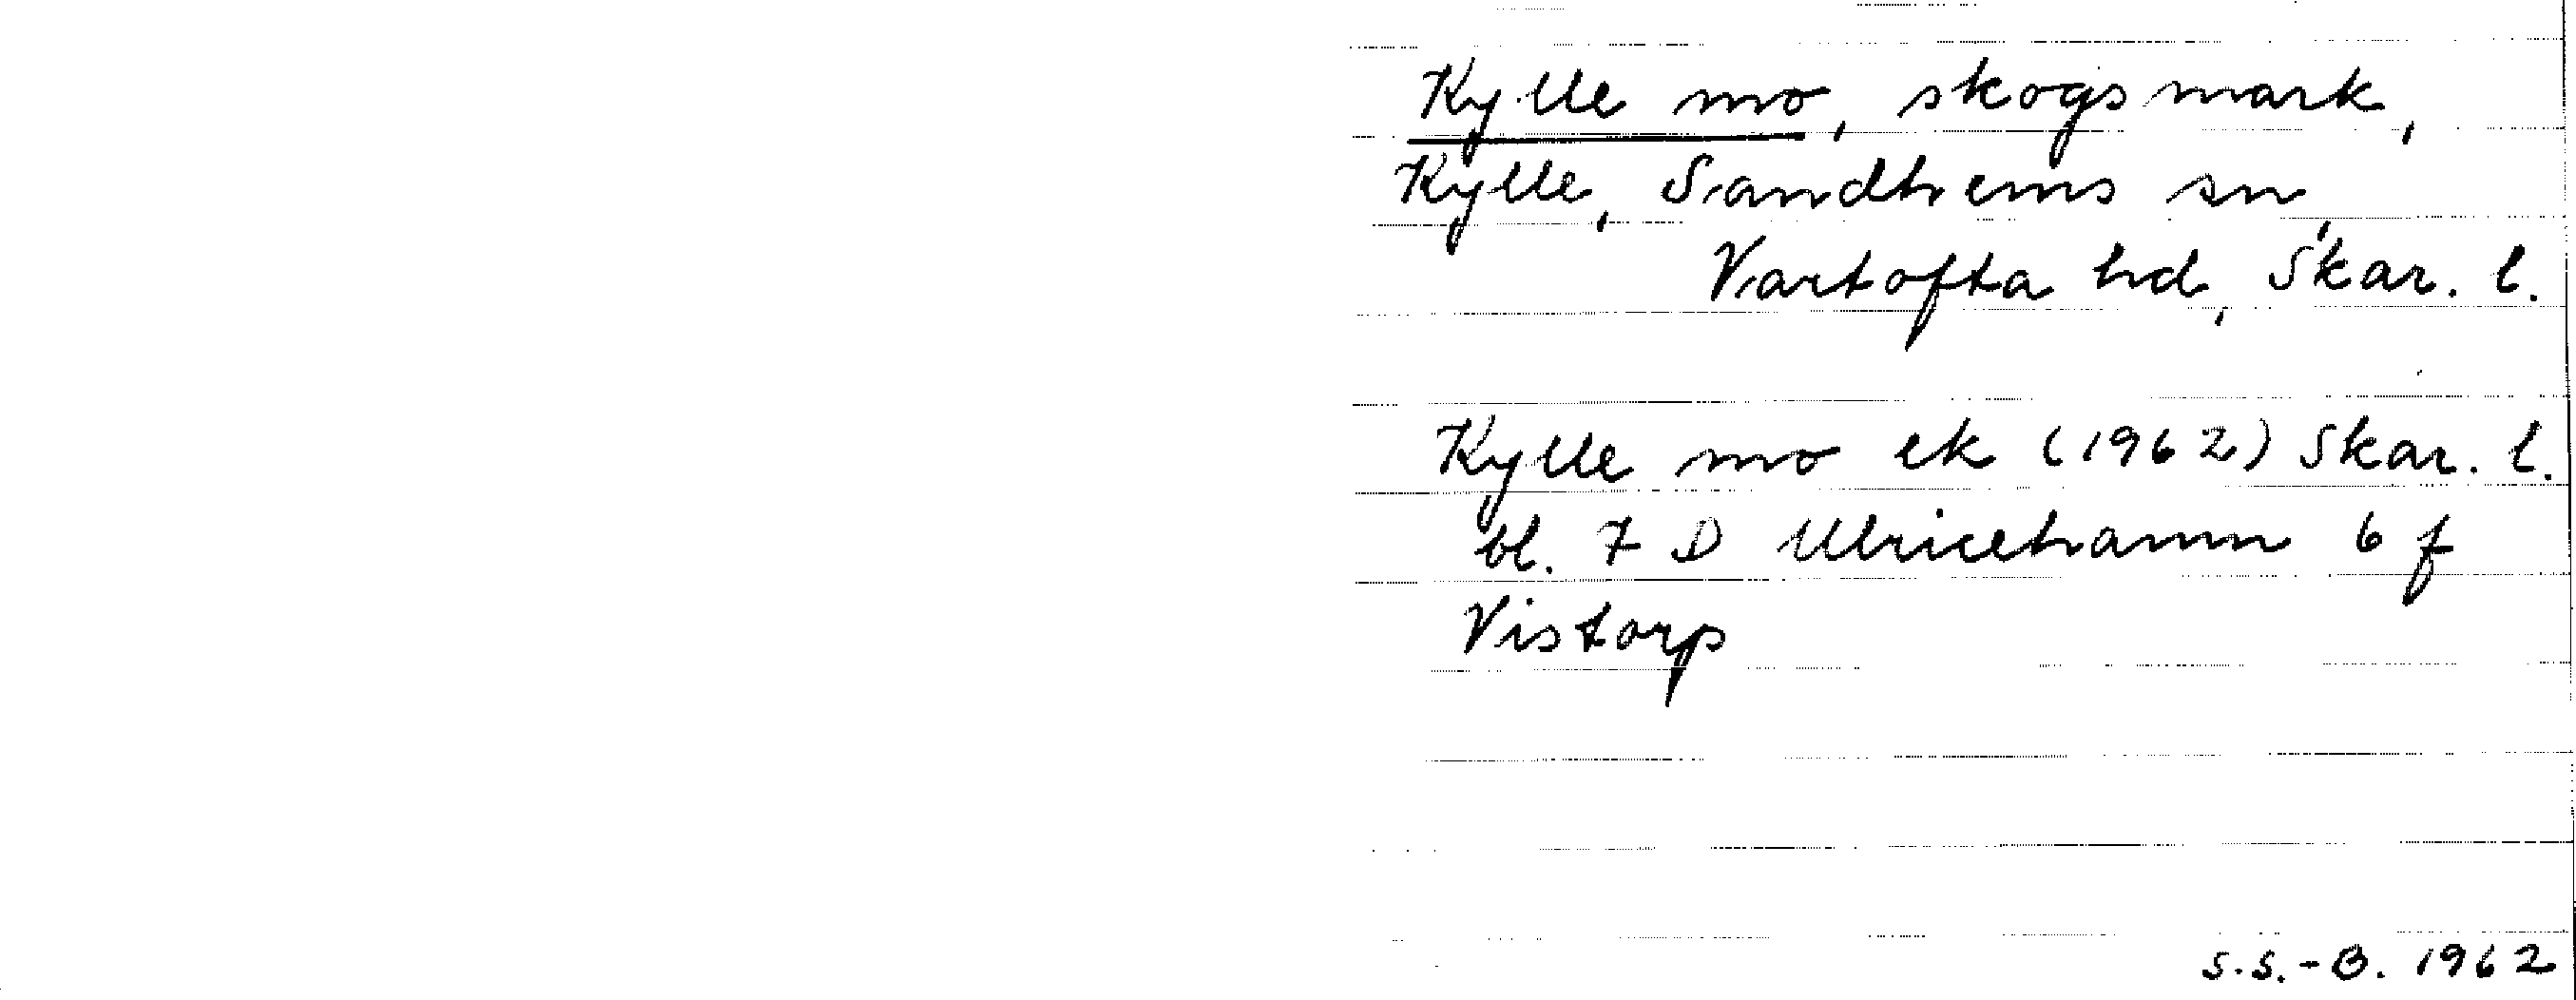 Kylle mo, skogsmark,
Kylle, Sandhems sn,
Vartofta hd, Skar. l.
Kylle mo ek (1962) Skar. l.
bl. 7 D Ulricehamn 6 f
Vistorp
S.S.-B. 1962